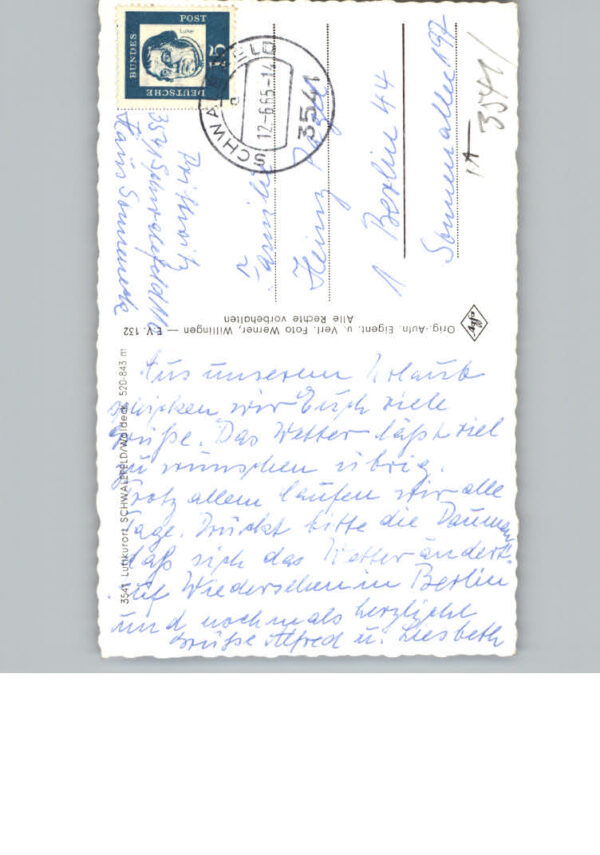 DEUTSCHE
BUNDES
POST
15
Luther
SCHWALEFELD
12.-6.65-14
3541
3541
Prittwitz
3541 Schwalefeld 11a
Haus Sommer
Familie
Heinz
1 Berlin 44
Sonnenallee 197
Orig.-Aufn. Eigent. u. Verl. Foto Werner, Willingen — E.V. 132
Alle Rechte vorbehalten
Agfa
3541 Luftkurort SCHWALEFELD/Waldeck, 520-843 m
Aus unserem Urlaub
schicken wir Euch viele
Grüße. Das Wetter läßt viel
zu wünschen übrig.
Trotz allem laufen wir alle
Tage. Drückt bitte die Daumen
daß sich das Wetter ändert.
Auf Wiedersehen in Berlin
und nochmals herzliche
Grüße Alfred u. Liesbeth